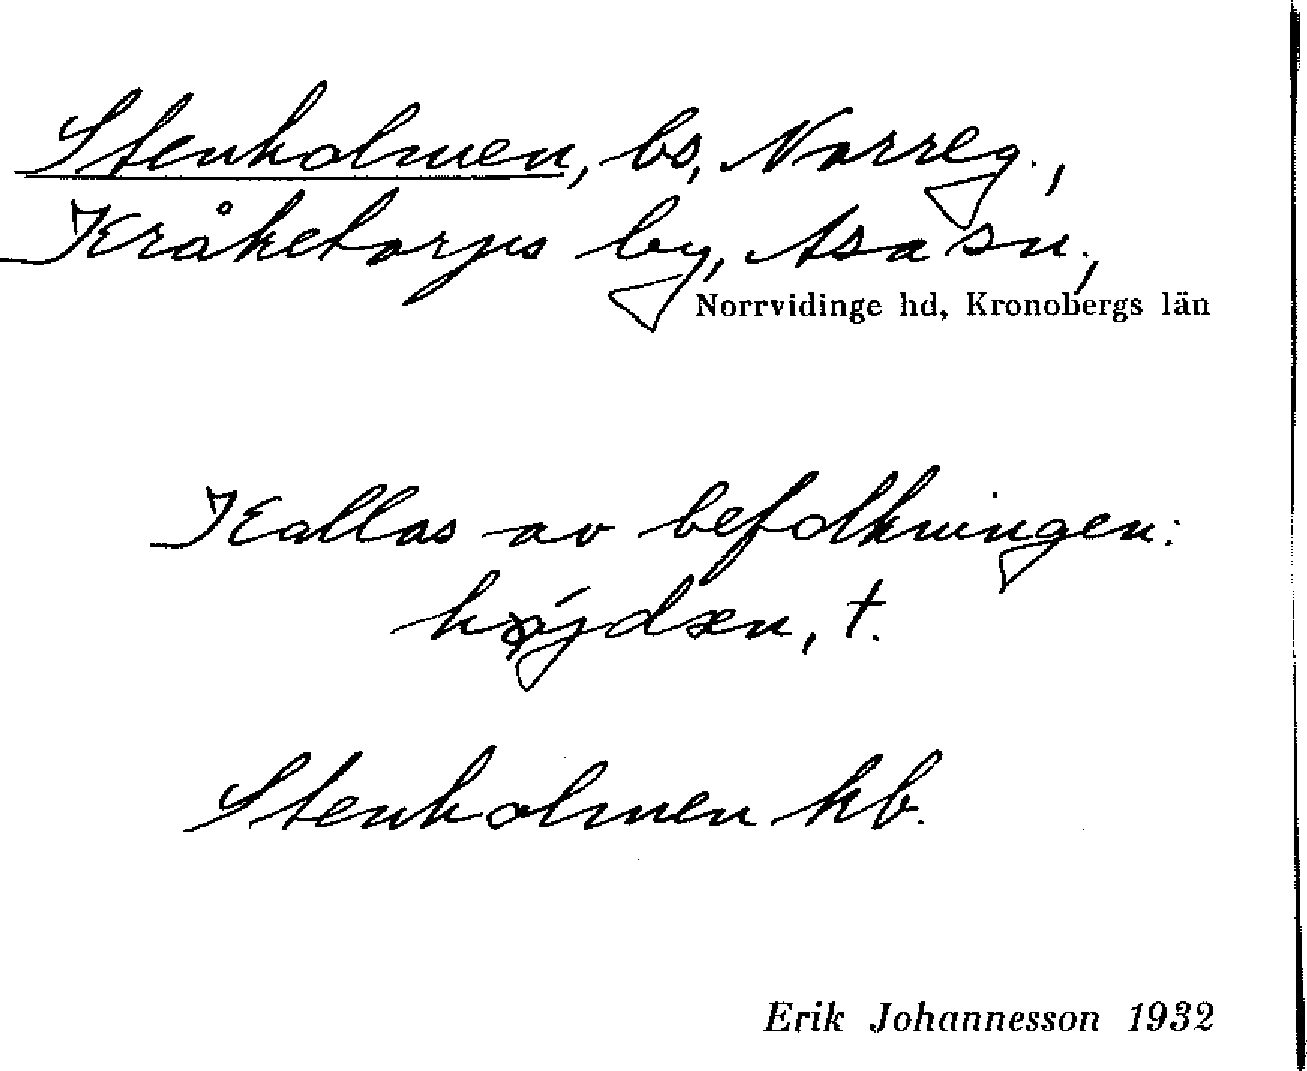 Stenholmen, bs, Norreg.,
Kråketorps by, Asa sn.,
Norrvidinge hd, Kronobergs län
Kallas av befolkningen:
t.
Stenholmen kb.
Erik Johannesson 1932